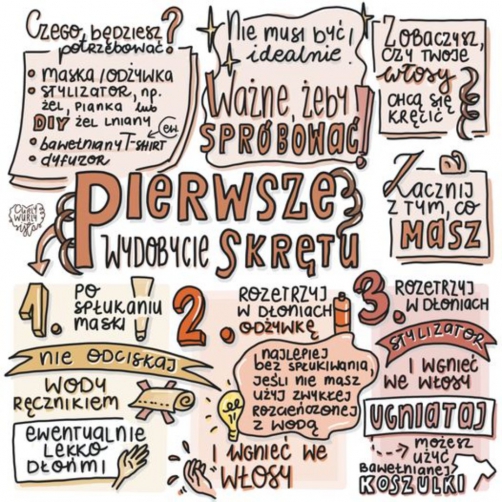 Czego będziesz
potrzebować?
• maska/odżywka
• stylizator, np.
żel, pianka lub
DIY żel lniany
ew.
• bawełniany T-shirt
• dyfuzor
Nie musi być
idealnie.
Ważne, żeby
SPRÓBOWAĆ!
Zobaczysz,
czy twoje
włosy
chcą się
kręcić
Zacznij
z tym, co
masz
PIERWSZE
WYDOBYCIE SKRĘTU
1. po
spłukaniu
maski!
nie odciskaj
wody
ręcznikiem
ewentualnie
lekko
dłońmi
2. rozetrzyj
w dłoniach
odżywkę
najlepiej
bez spłukiwania,
jeśli nie masz
użyj zwykłej
rozcieńczonej
z wodą
i wgnieć we
włosy
3. rozetrzyj
w dłoniach
stylizator
i wgnieć
we włosy
UGNIATAJ
możesz
użyć
bawełnianej
KOSZULKI